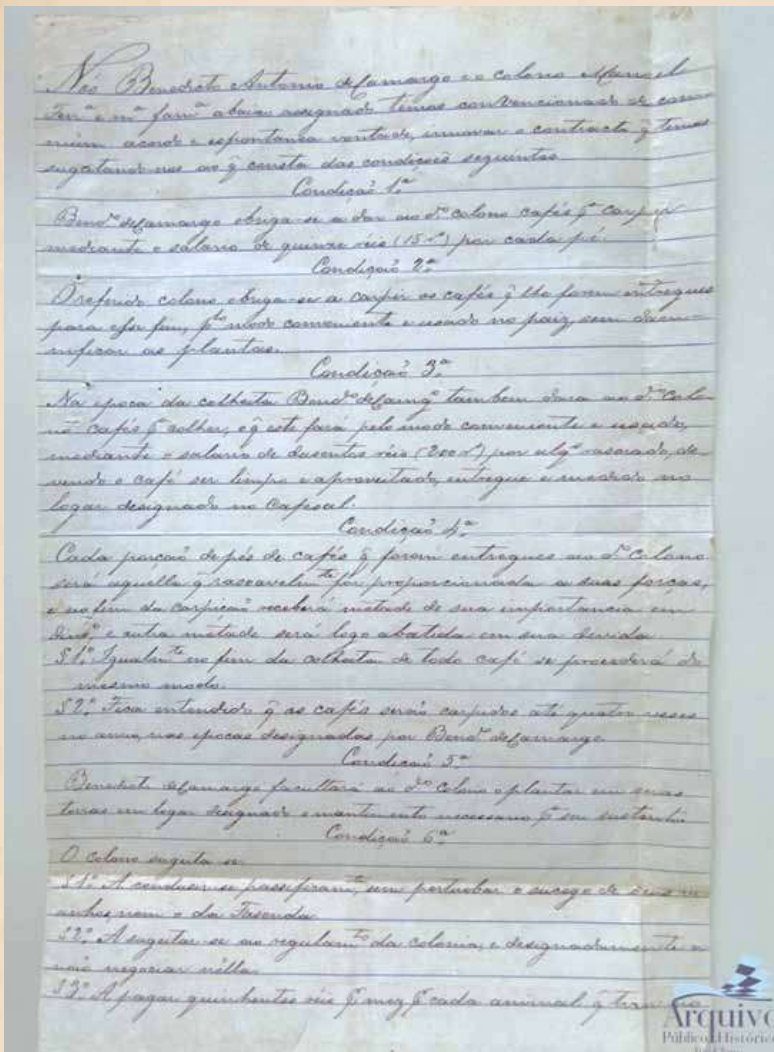 Nós Benedicto Antonio de Camargo e o colono Manoel
Ferrª e mª famª abaixo assignado temos convencionado de com-
mum acordo e espontanea vontade, innovar o contracto q̃ temos
sugeitando nos ao q̃ consta das condições seguintes
Condição 1ª
Bendº de Camargo obriga-se a dar ao dº colono cafés pª carpir
mediante o salario de quinze réis (15 rs) por cada pé.
Condição 2ª
O referido colono obriga-se a carpir os cafés q̃ lhe forem entregues
para esse fim, pelo modo conveniente e usado no paiz, sem dam-
nificar as plantas.
Condição 3ª
Na epoca da colheita Bendº de Camgº tambem dara ao dº Colo-
no cafés pª colher, e q̃ este fará pelo modo conveniente e usado,
mediante o salario de dusentos réis (200 rs) por alqe rasorado, de-
vendo o café ser limpo e aproveitado, entregue e medido no
logar designado no Cafesal.
Condição 4ª
Cada porcaõ de pés de cafés q̃ forem entregues ao dº Colono
será aquella q̃ rasoavelmte for proporcionada a suas forças,
e no fim da carpição receberá metade de sua importancia em
dinrº, e outra metade será logo abatida em sua devida
§ 1º. Igualmte no fim da colheita de todo café se procederá do
mesmo modo.
§ 2º. Fica entendido q̃ os cafés serão carpidos até quatro veses
no anno, nas epocas designadas por Bendº de Camargo.
Condição 5ª
Benedicto de Camargo facultará ao dº Colono o plantar em suas
terras em logar designado o mantimento necessario pª seu sustento.
Condição 6ª
O colono sugeita se
§ 1º. A condusir-se passificamte, sem pertubar o sucego de seus vi-
sinhos, nem o da Fasenda
§ 2º. A sugeitar-se ao regulamto da colonia, e designadamente a
não negociar nella.
§ 3º. A pagar quinhentos réis pr mez pr cada animal q̃
Arquivo
Público e Histórico